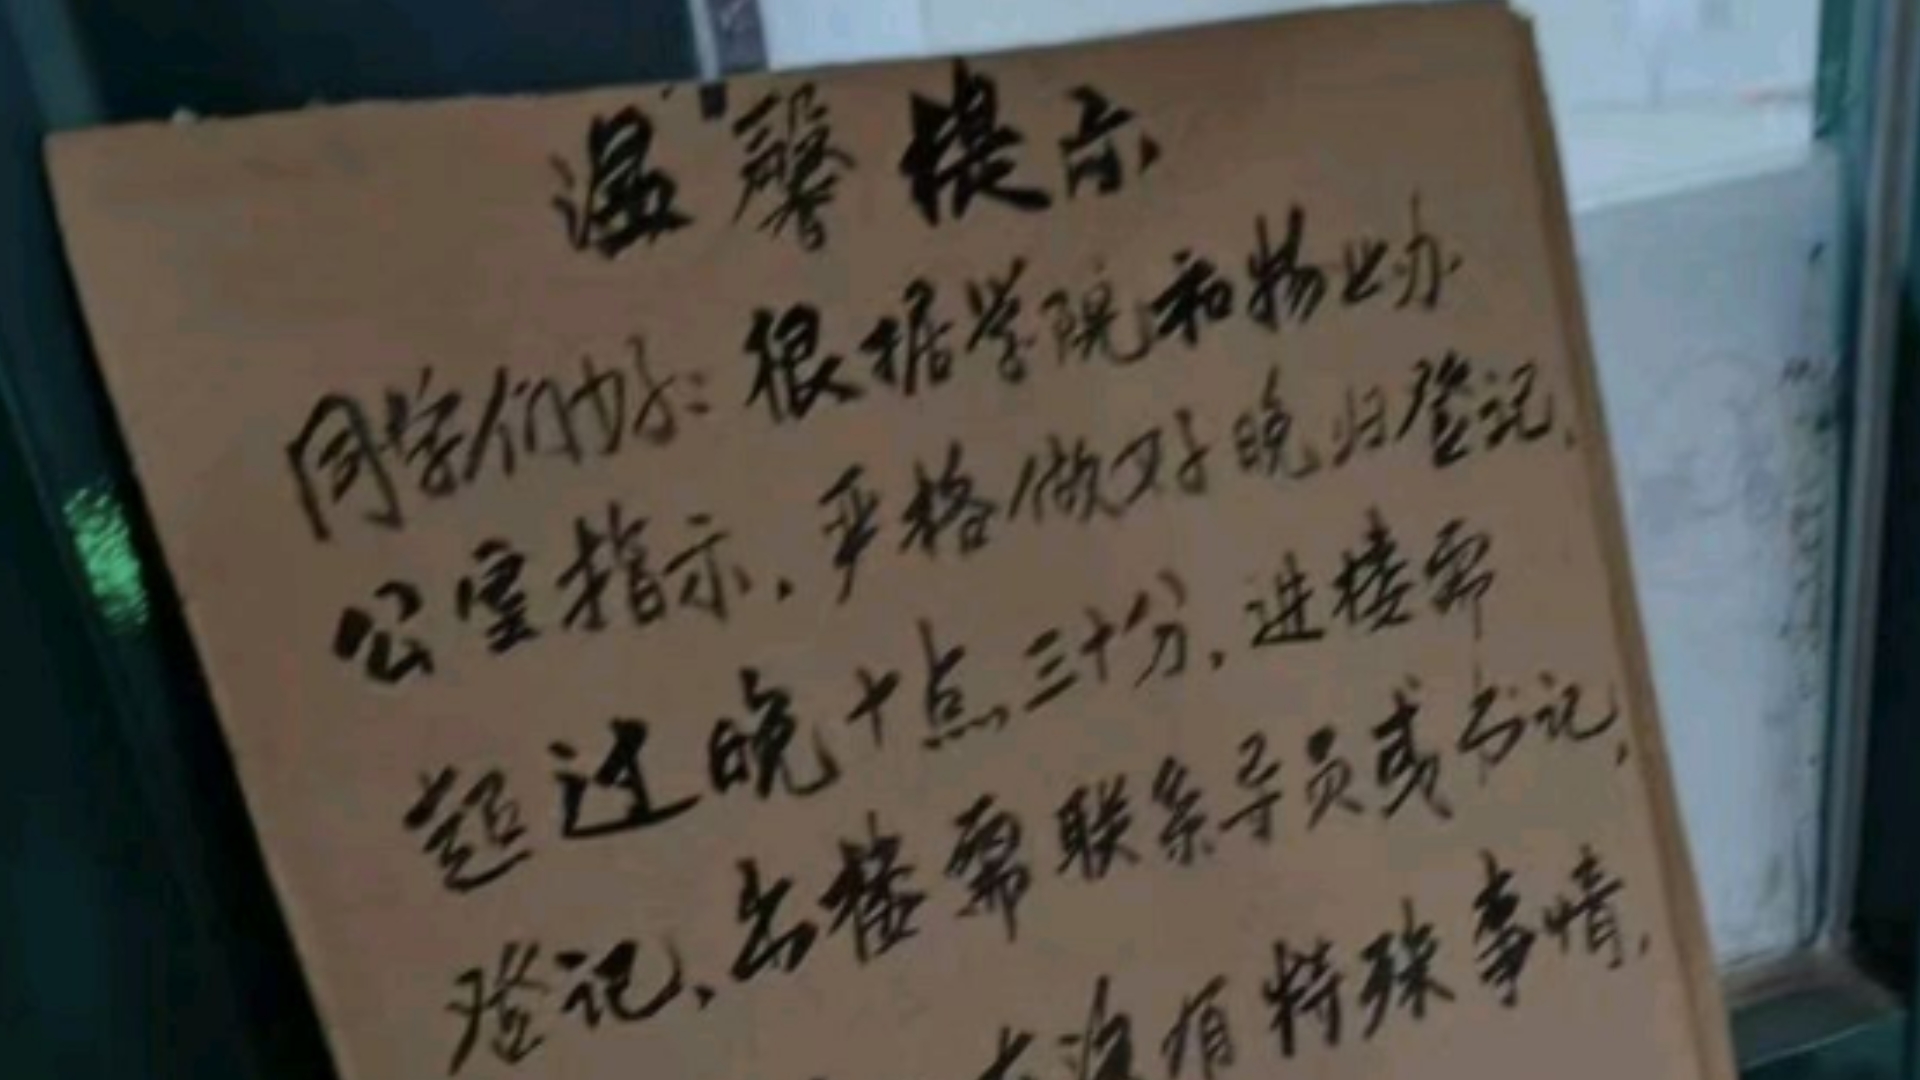 温馨提示
同学们好：根据学院和物业办
公室指示，严格做好晚归登记，
超过晚十点三十分，进楼需
登记，出楼需联系导员或书记，
没有特殊事情，